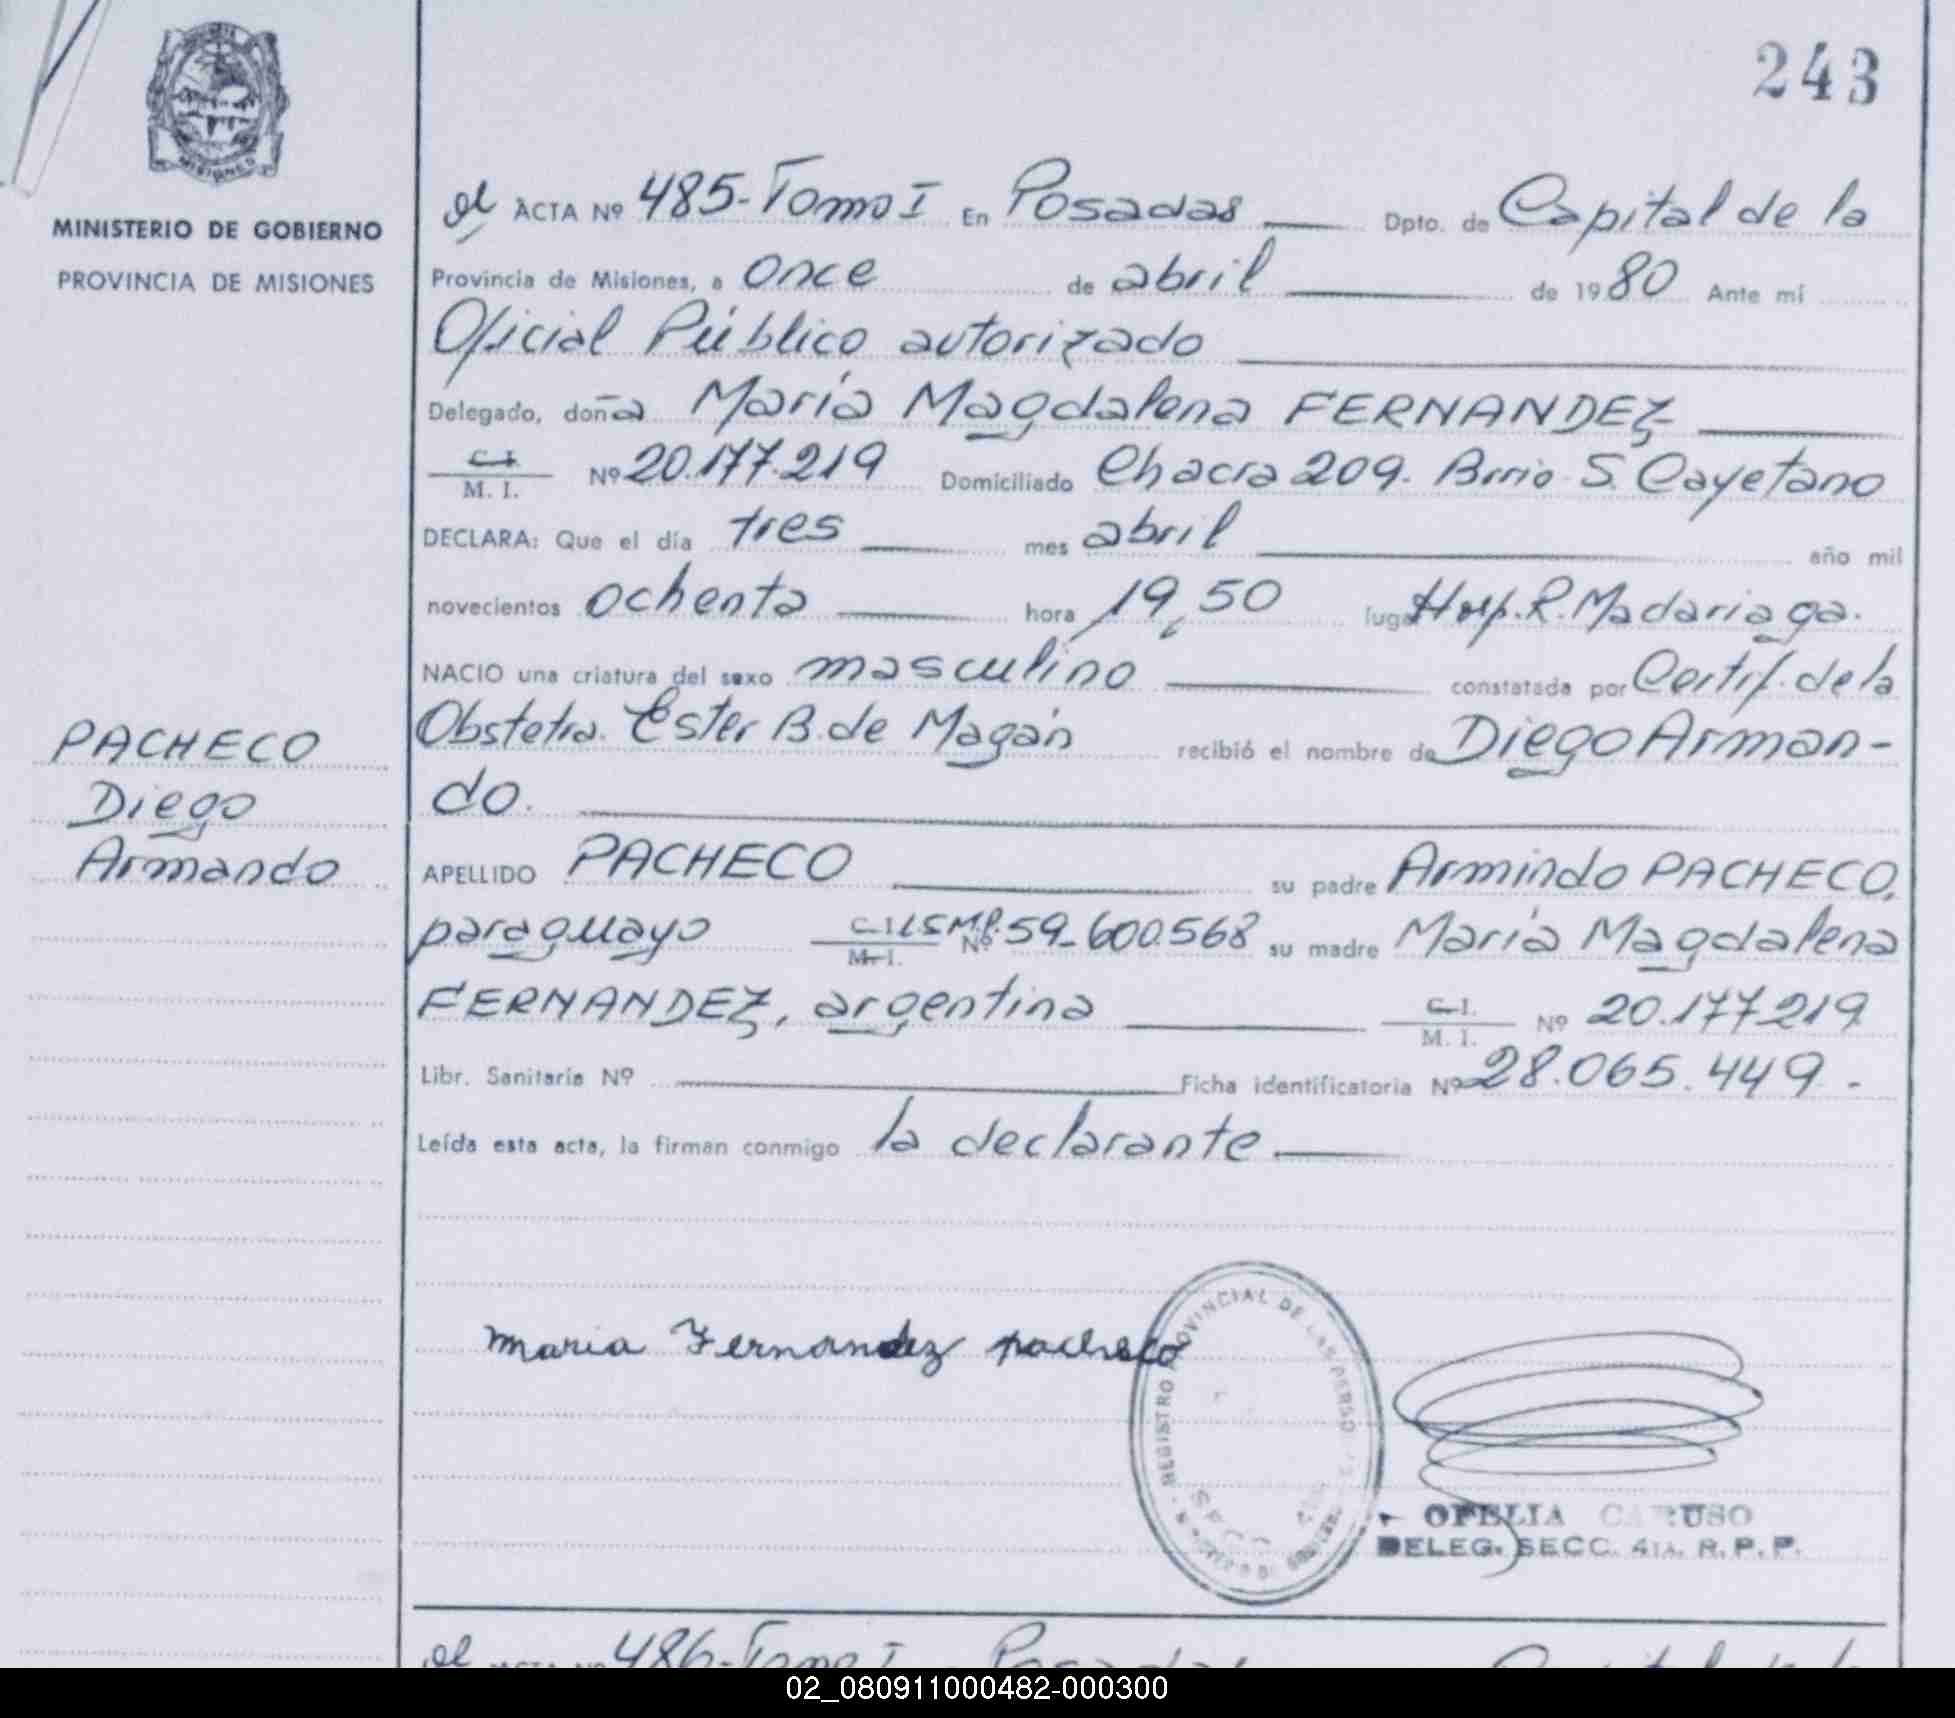 243
MISIONES
MINISTERIO DE GOBIERNO
PROVINCIA DE MISIONES
ACTA Nº 485-Tomo I En Posadas Dpto. de Capital de la
Provincia de Misiones, a once de abril de 1980 Ante mí
Oficial Público autorizado
Delegado, doña María Magdalena FERNANDEZ
C.I. M. I. Nº 20.177.219 Domiciliado Chacra 209. Brrio S. Cayetano
DECLARA: Que el día tres mes abril año mil
novecientos ochenta hora 19,50 lugar Hosp. R. Madariaga.
NACIO una criatura del sexo masculino constatada por Certif. de la
Obstetra. Ester B. de Magán recibió el nombre de Diego Arman-
do.
PACHECO
Diego
Armando
APELLIDO PACHECO su padre Armindo PACHECO,
paraguayo C.I. M.I. Nº 59-600.568 su madre María Magdalena
FERNANDEZ, argentina C.I. M. I. Nº 20.177.219
Libr. Sanitaria Nº Ficha identificatoria Nº 28.065.449.-
Leída esta acta, la firman conmigo la declarante
maria Fernandez pacheco
REGISTRO PROVINCIAL DE LAS PERSO
SECC
OFELIA CARUSO
DELEG. SECC. 4ta. R. P. P.
486-Tomo I
02_080911000482-000300